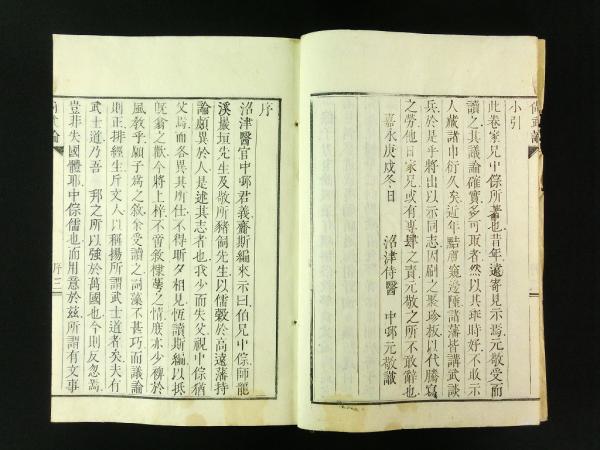 小引
此卷家兄中倧所著也昔年遠寄見示焉元敬受而
讀之其議論確實多可取者然以其乖時好不敢示
人藏諸巾衍久矣近年黠虜窺邊陲諸藩皆講武談
兵於是乎將出以示同志因刷之聚珍板以代謄寫
之勞他日家兄或有專肆之責元敬之所不敢辭也
嘉永庚戌冬日
沼津侍醫 中邨元敬識
序
沼津醫官中邨君義齋斯編來示曰伯兄中倧師龍
溪巖垣先生及敬所豬飼先生以儒穀於高遠藩持
論頗異於人是述其志者也我少而失父視中倧猶
父焉而各異其所仕不得昕夕相見恆讀斯編以抵
既翁之歡今將上梓不啻敘悽夢之情庶亦少裨於
風教乎願子爲之敘余受讀之詞藻不甚巧而議論
則正排經生斥文人以稱揚所謂武士道者矣夫有
武士道乃吾 邦之所以強於萬國也今則反忽焉
豈非失國體耶中倧儒也而用意於茲所謂有文事
序三